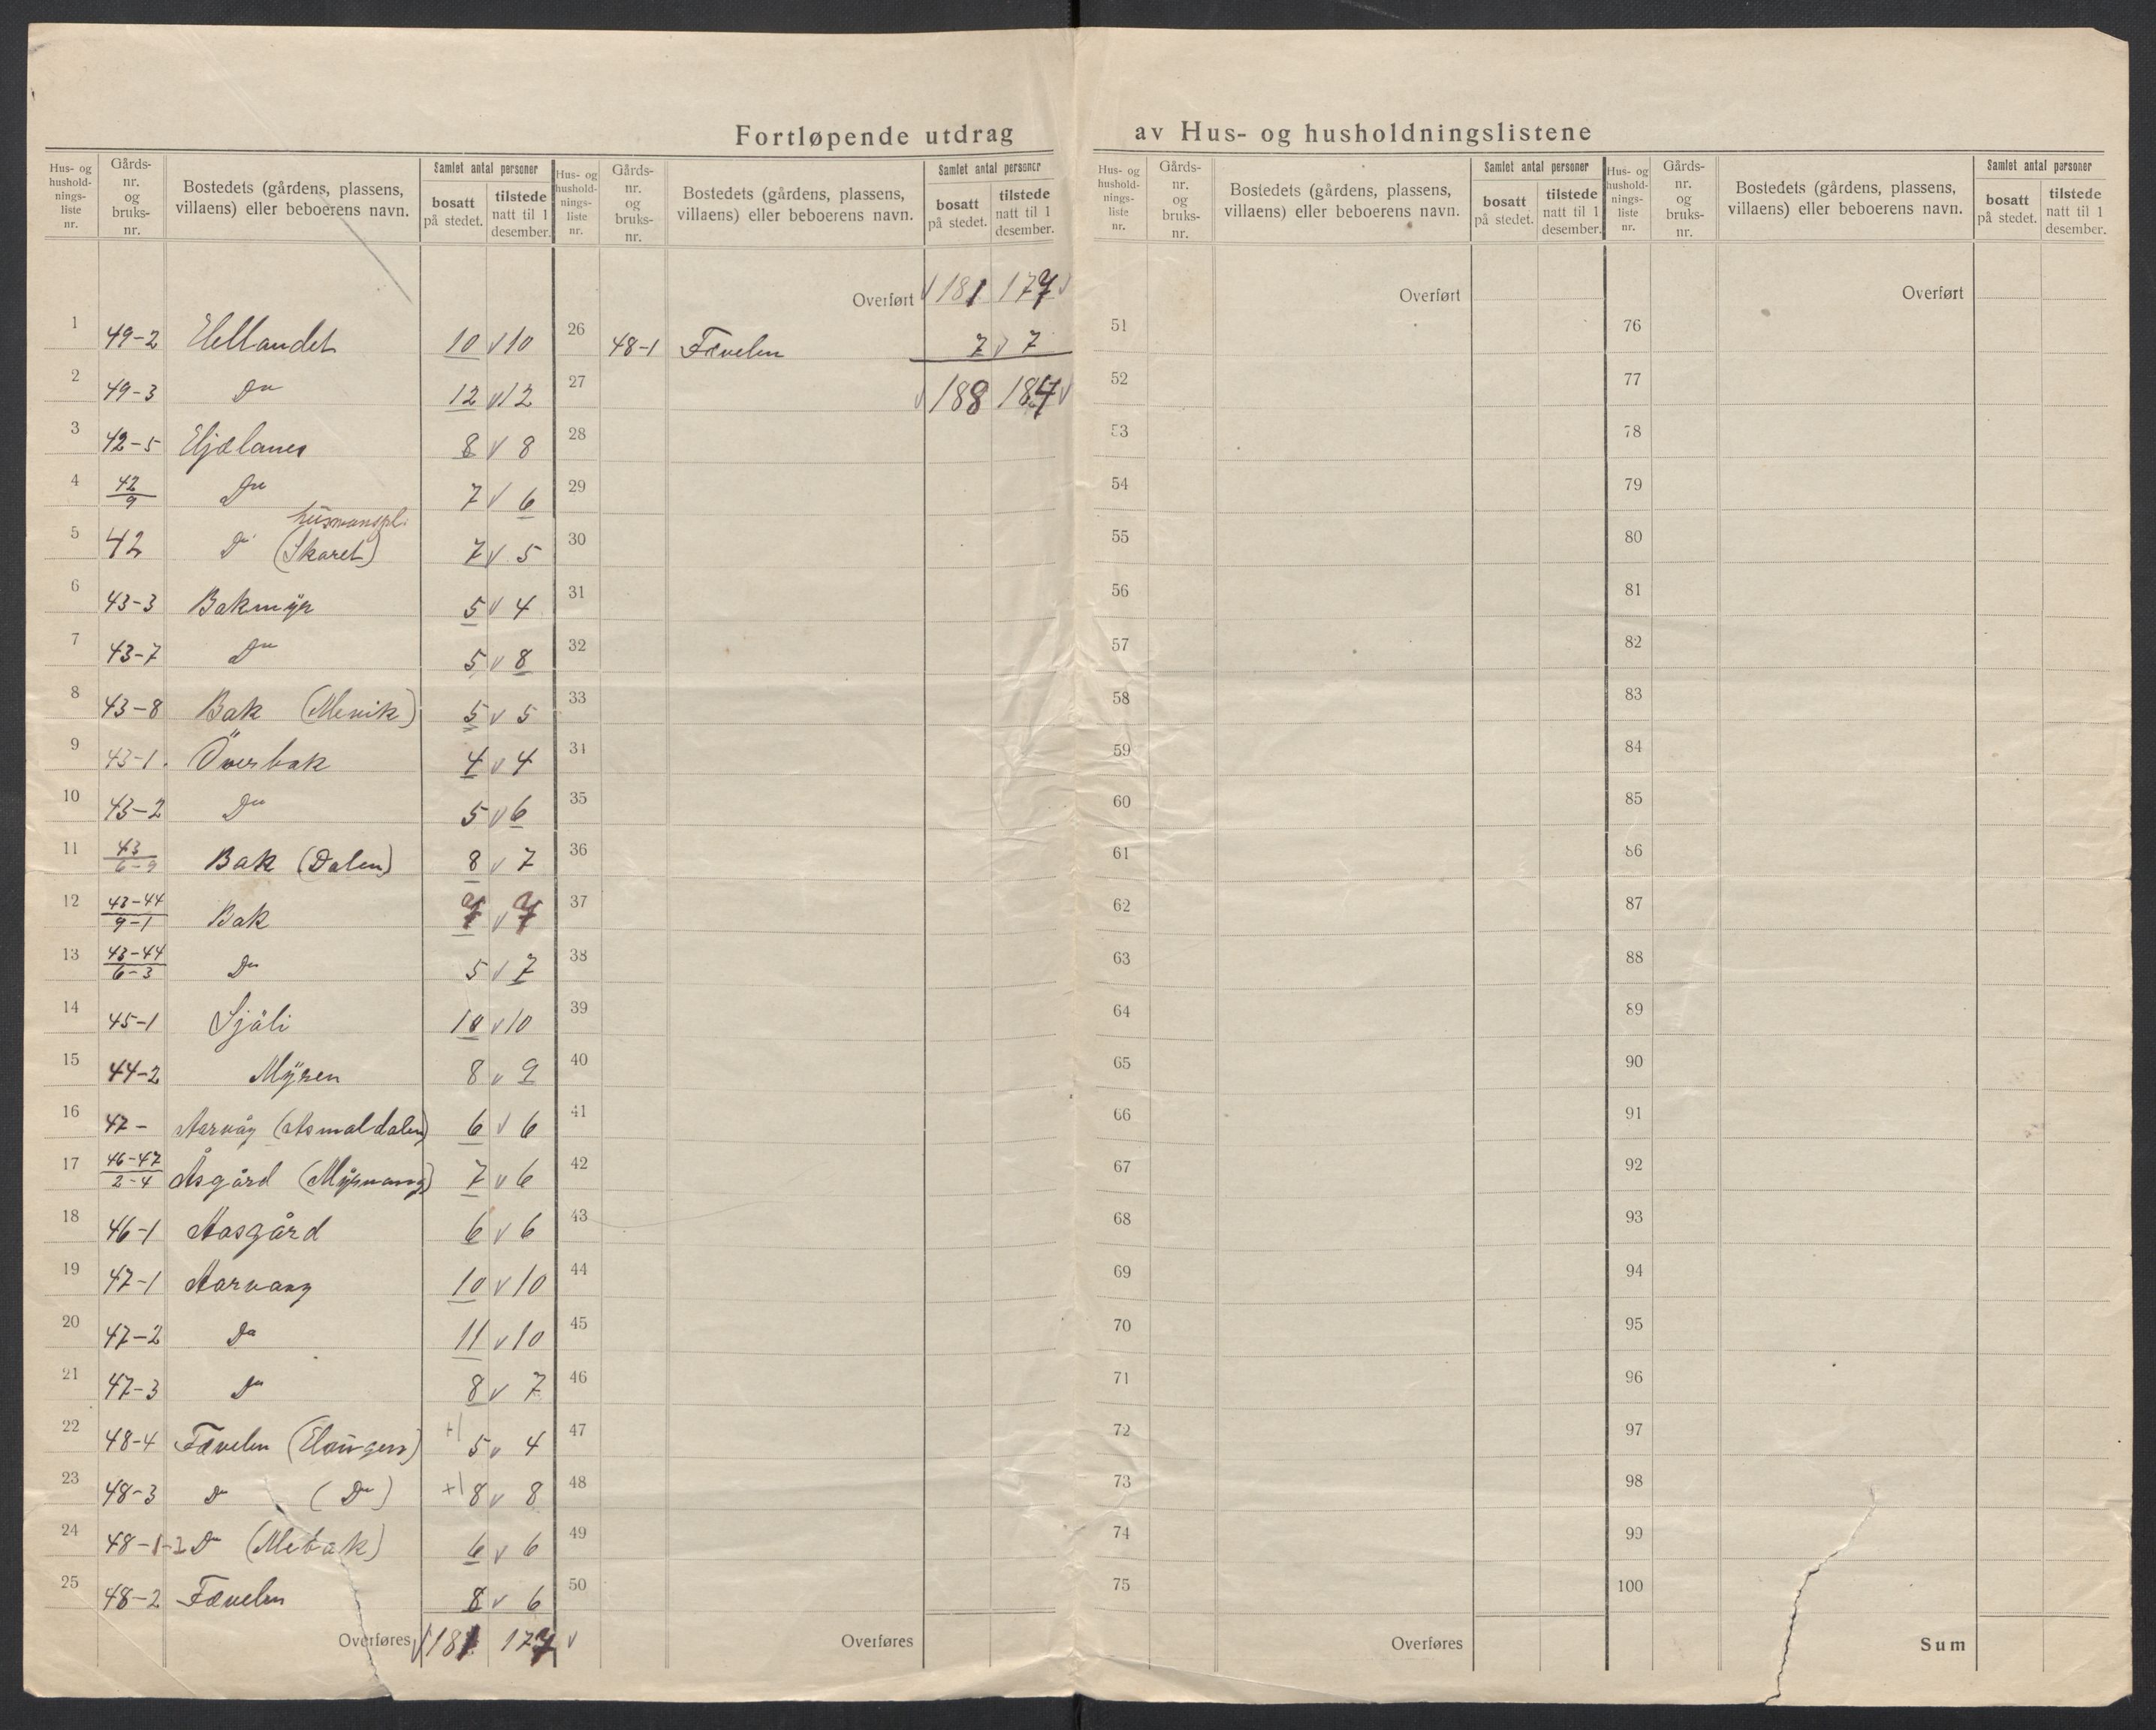 Fortløpende utdrag av Hus- og husholdningslistene
Hus- og hushold- nings- liste nr.
Gårds- nr. og bruks- nr.
Bostedets (gårdens, plassens, villaens) eller beboerens navn.
Samlet antal personer
bosatt på stedet.
tilstede natt til 1 desember.
Hus- og hushold- nings- liste nr.
Gårds- nr. og bruks- nr.
Bostedets (gårdens, plassens, villaens) eller beboerens navn.
Samlet antal personer
bosatt på stedet.
tilstede natt til 1 desember.
Hus- og hushold- nings- liste nr.
Gårds- nr. og bruks- nr.
Bostedets (gårdens, plassens, villaens) eller beboerens navn.
Samlet antal personer
bosatt på stedet.
tilstede natt til 1 desember.
Hus- og hushold- nings- liste nr.
Gårds- nr. og bruks- nr.
Bostedets (gårdens, plassens, villaens) eller beboerens navn.
Samlet antal personer
bosatt på stedet.
tilstede natt til 1 desember.
1 49-2 Hellandet 10 v 10
2 49-3 Do 12 v 12
3 42-5 8 v 8
4 42/9 Do 7 v 6
husmanspl.
5 42 Do (Skaret) 7 v 5
6 43-3 Bakmyr 5 v 4
7 43-7 Do 5 v 8
8 43-8 Bak (Mevik) 5 v 5
9 43-1. Överbak 4 v 4
10 43-2 Do 5 v 6
11 43/6-9 Bak (Dalen) 8 v 7
12 43-44/9-1 Bak v
13 43-44/6-3 Do 5 v 7
14 45-1 Sjöli 10 v 10
15 44-2 Myren 8 v 9
16 47- Aarvåg (Asmaldalen) 6 v 6
17 46-47/2-4 Åsgård (Myrvang) 7 v 6
18 46-1 Aasgård 6 v 6
19 47-1 Aarvaag 10 v 10
20 47-2 Do 11 v 10
21 47-3 Do 8 v 7
22 48-4 Fævelen (Haugen) +1 5 v 4
23 48-3 Do (Do) +1 8 v 8
24 48-1-2 Do (Mebak) 6 v 6
25 48-2 Fævelen 8 v 6
Overføres v 181 177 v
Overført v 181 177 v
26 48-1 Fævelen 7 v 7
27 v 188 184 v
28
29
30
31
32
33
34
35
36
37
38
39
40
41
42
43
44
45
46
47
48
49
50
Overføres
Overført
51
52
53
54
55
56
57
58
59
60
61
62
63
64
65
66
67
68
69
70
71
72
73
74
75
Overføres
Overført
76
77
78
79
80
81
82
83
84
85
86
87
88
89
90
91
92
93
94
95
96
97
98
99
100
Sum